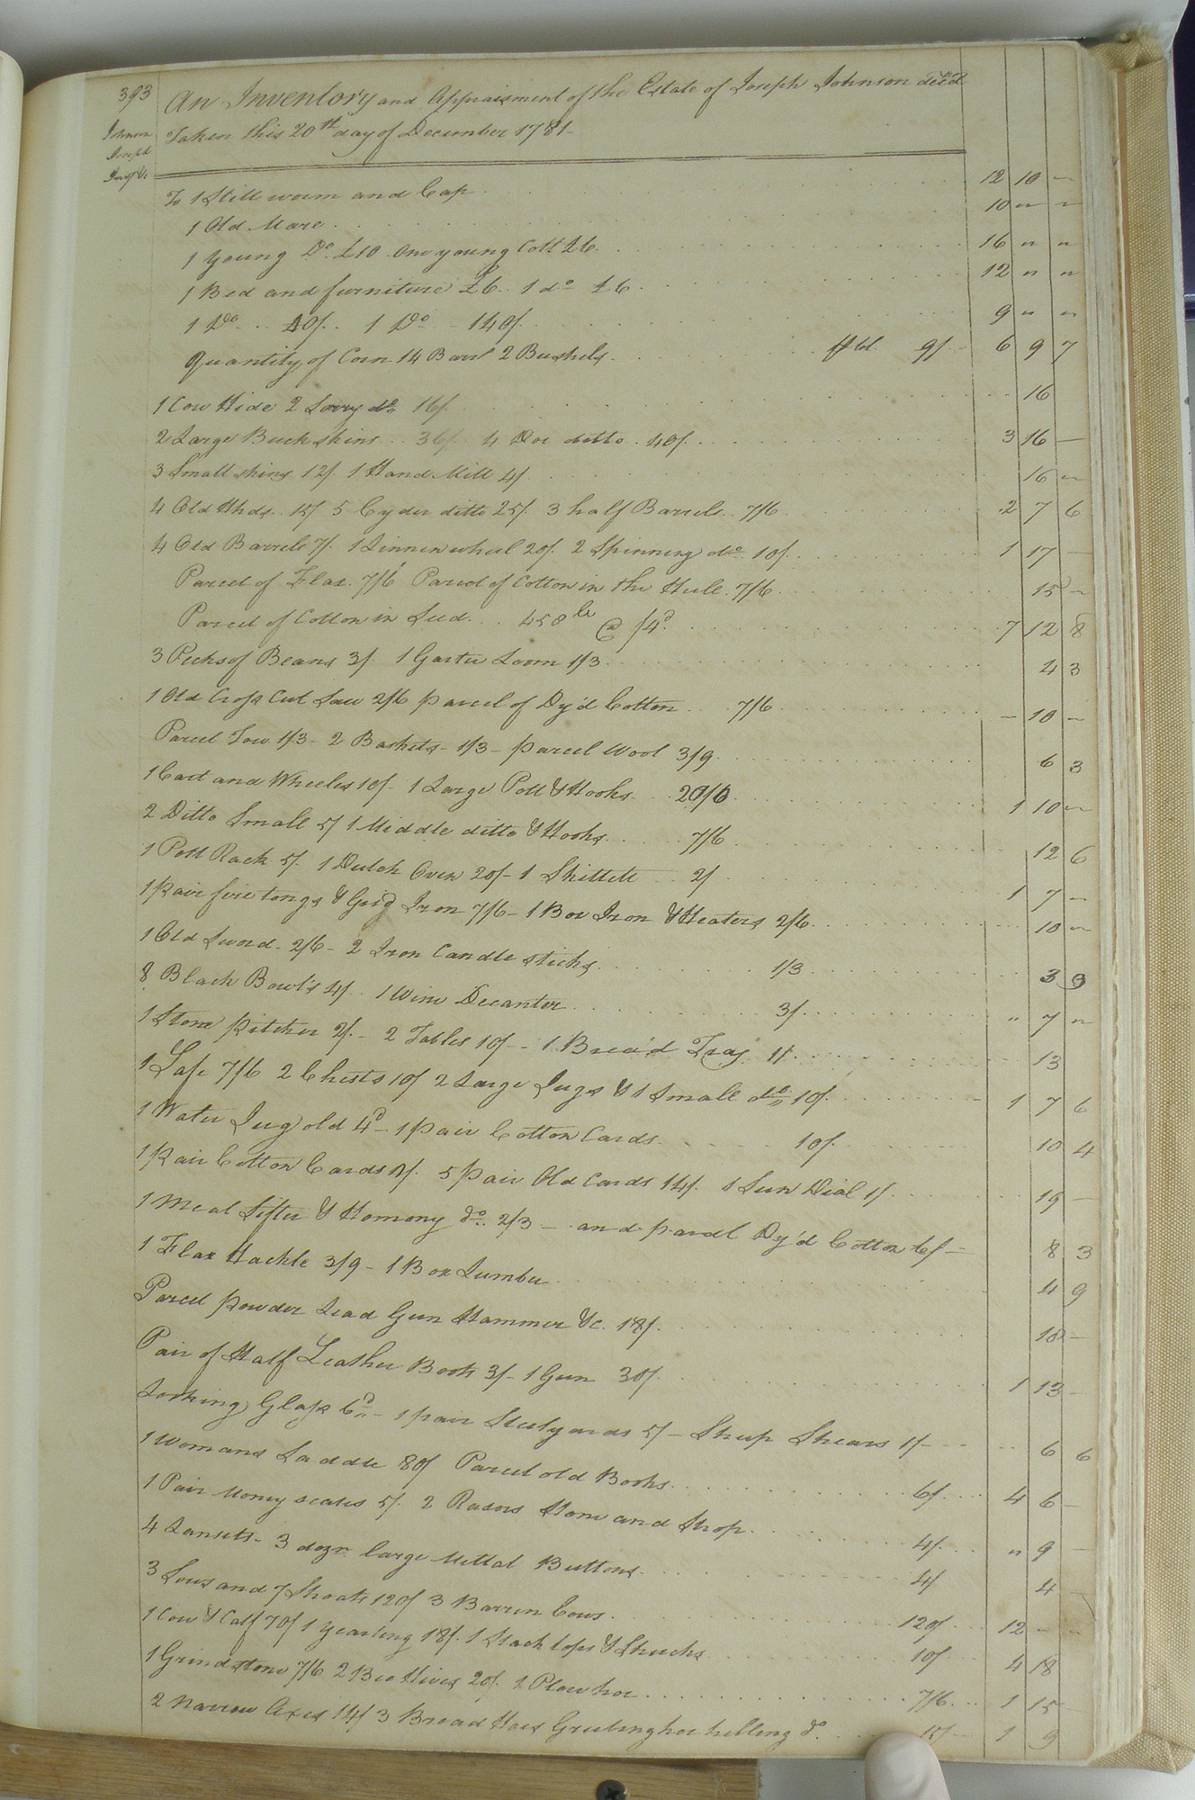 393
An Inventory and Appraisment of the Estate of Joseph Johnson decd
Johnson
Joseph
Taken this 20th day of December 1781
To 1 Still worm and Cap 12 10 —
1 Old Mare 10 " "
1 Young Do. £10 One young Colt £6 16 " "
1 Bed and furniture £6. 1 do £6 12 " "
1 Do 40/. 1 Do 140/ 9 " "
Quantity of Corn 14 Barrl 2 Bushels 9/ 6 9 7
1 Cow Hide 2 Sorry do 16/. 16
2 Large Buckskins 36/ 4 Doe ditto 40/. 3 16 —
3 Small skins 12/ 1 Hand Mill 4/ 16 "
4 Old Hhds. 15/ 5 Cyder ditto 25/. 3 half Barrels 7/6 2 7 6
4 Old Barrels 7/. 1 Linnen wheel 20/. 2 Spinning do 10/. 1 17 —
Parcel of Flax 7/6 Parcel of Cotton in the Hull 7/6 15 —
Parcel of Cotton in Seed 458 lb @ /4d 7 12 8
3 Pecks of Beans 3/. 1 Garter Loom 1/3 4 3
1 Old Cross Cut Saw 2/6 parcel of Dy'd Cotton 7/6 — 10 —
Parcel Tow 1/3 - 2 Baskets - 1/3 - parcel Wool 3/9 6 3
1 Cart and Wheeles 10/. 1 Large Pott & Hooks 20/0 1 10 "
2 Ditto Small 5/ 1 Middle ditto & Hooks 7/6 12 6
1 Pott Rack 5/. 1 Dutch Oven 20/ - 1 Skillete 2/ 1 7 —
1 pair fire tongs & Grid Iron 7/6 - 1 Box Iron & Heaters 2/6 10 "
1 Old Sword - 2/6 - 2 Iron Candle sticks 1/3 3 9
8 Black Bowl's 4/. 1 Wine Decanter 3/. " 7 "
1 Stone pitcher 2/. - 2 Tables 10/ - 1 Bread Tray 1/. 13
1 Safe 7/6 2 Chests 10/ 2 Large Jugs & 1 Small do 10/. 1 7 6
1 Water Jug old 4d - 1 pair Cotton Cards 10/. 10 4
1 pair Cotton Cards 4/. 5 pair Old Cards 14/. 1 Sun Dial 1/. 19 —
1 Meal Sifter & Homony do. 2/3 — and parcel Dy'd Cotton 6/ — 8 3
1 Flax Hackle 3/9 - 1 Box Lumber 4 9
Parcel powder Lead Gun Hammer &c. 18/. 18 —
Pair of Half Leather Boots 3/ - 1 Gun 30/. 1 13 —
Looking Glass 6d - 1 pair Steelyards 5/ - Sheep Shears 1/ 6 6
1 Womans Saddle 80/ Parcel old Books 6/. 4 6 —
1 Pair Money scales 5/. 2 Rasors Hone and Strop 4/. " 9 —
4 Lansets - 3 dozn large Mettal Buttons 4/ 4
3 Sows and 7 Shoats 120/ 3 Barren Cows 120/ 12
1 Cow & Calf 70/ 1 Yearling 18/. 1 Stack tops & Shucks 10/ 4 18
1 Grindstone 7/6 2 Bee Hives 20/. 1 Plow hoe 7/6 1 15
2 Narrow Axes 14/ 3 Broad Hoes Grubing hoe hilling do 15/ 1 9